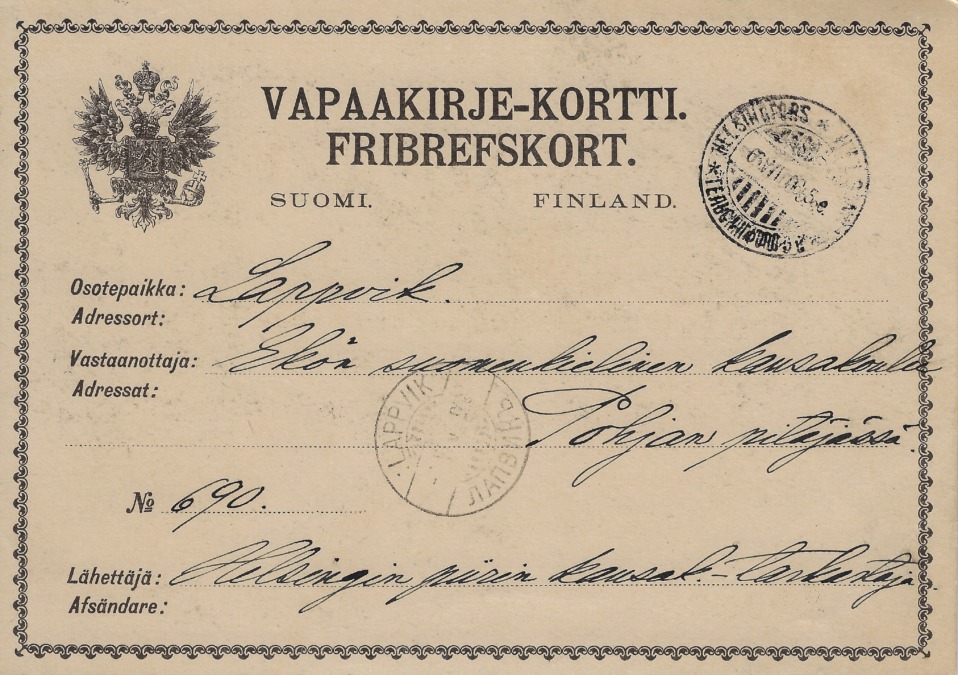 VAPAAKIRJE-KORTTI.
FRIBREFSKORT.
SUOMI. FINLAND.
HELSINGFORS
Osotepaikka: Lappvik.
Adressort:
Vastaanottaja: Ekön suomenkielinen kansakoulu
Adressat:
Pohjan pitäjässä.
LAPPVIK
ЛАПВИКЪ
№ 690.
Lähettäjä: Helsingin piirin kansak.-tarkastaja.
Afsändare: